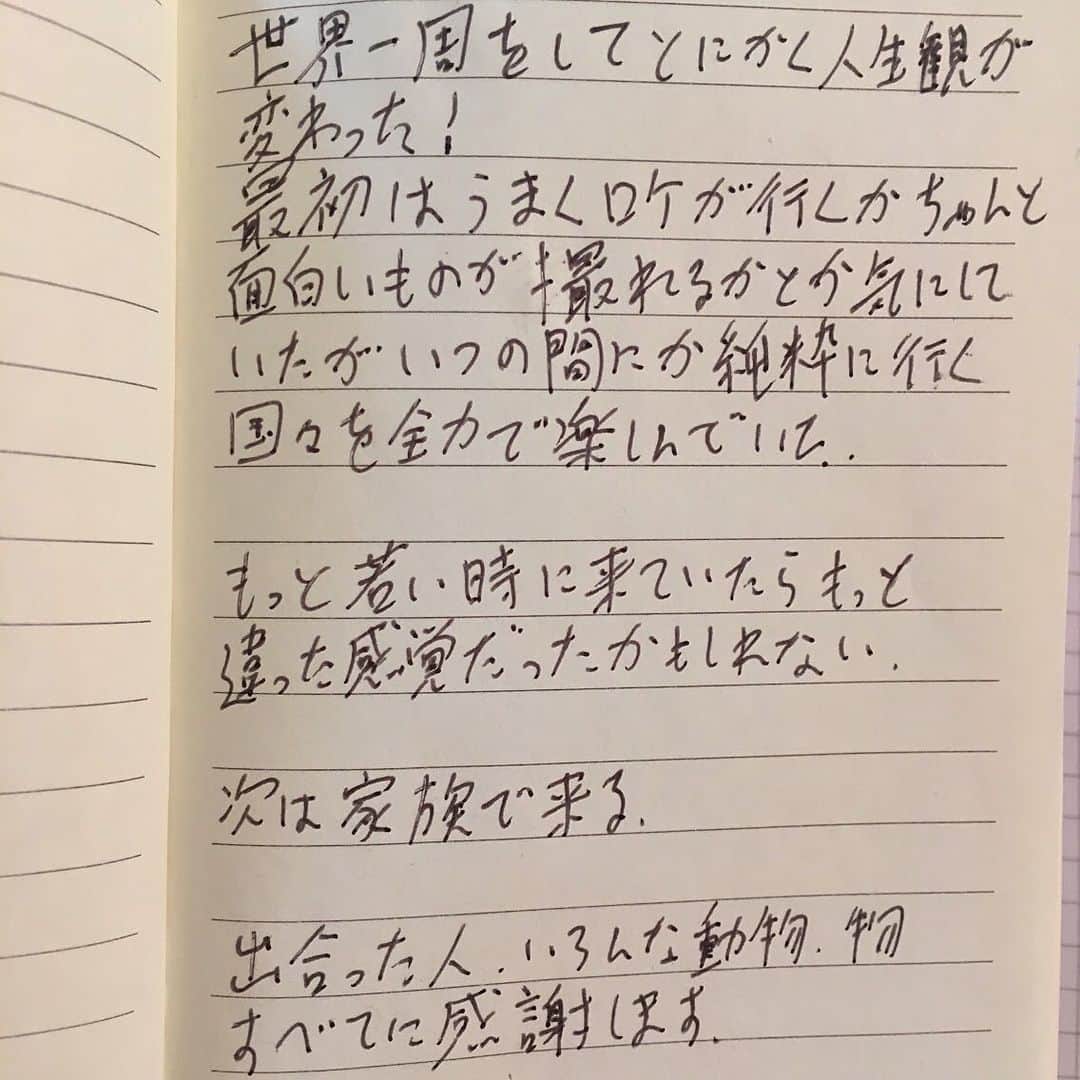 世界一周をしてとにかく人生観が
変わった！
最初はうまくロケが行くかちゃんと
面白いものが撮れるかとか気にして
いたがいつの間にか純粋に行く
国々を全力で楽しんでいた.
もっと若い時に来ていたらもっと
違った感覚だったかもしれない.
次は家族で来る.
出合った人.いろんな動物.物
すべてに感謝します.